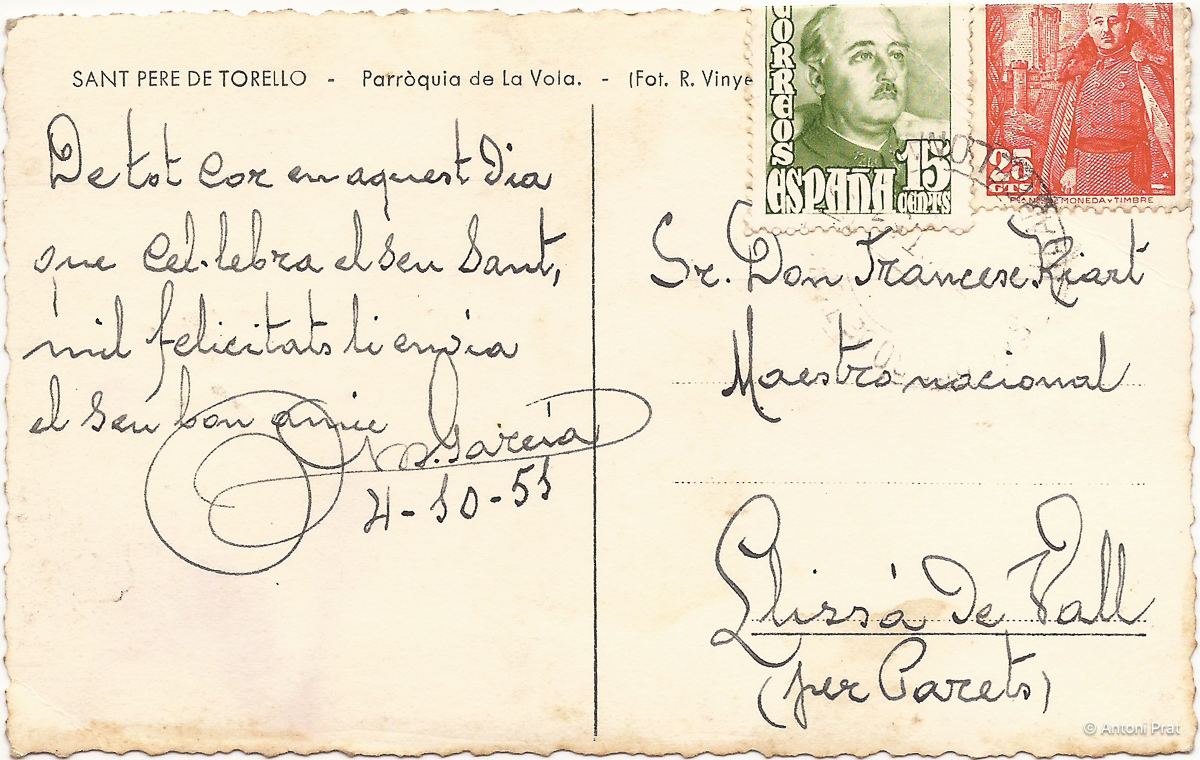 SANT PERE DE TORELLO - Parròquia de La Vola. - (Fot. R. Vinye
CORREOS
ESPAÑA 15 CENTS
25 CTS
MONEDA Y TIMBRE
De tot cor en aquest Dia
que cel·lebra el seu Sant,
mil felicitats li envia
el seu bon amic
García
4-10-51
Sr. Don Francesc Riart
Maestro nacional
Llissá de Vall
(per Parets)
© Antoni Prat